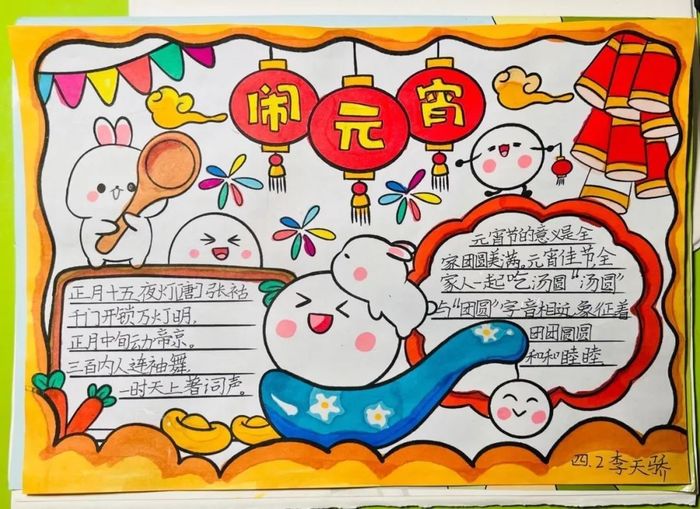 闹元宵
正月十五夜灯[唐]张祜
千门开锁万灯明,
正月中旬动帝京。
三百内人连袖舞,
一时天上著词声。
元宵节的意义是全
家团圆美满。元宵佳节全
家人一起吃汤圆"汤圆"
与"团圆"字音相近,象征着
团团圆圆
和和睦睦
四.2李天骄